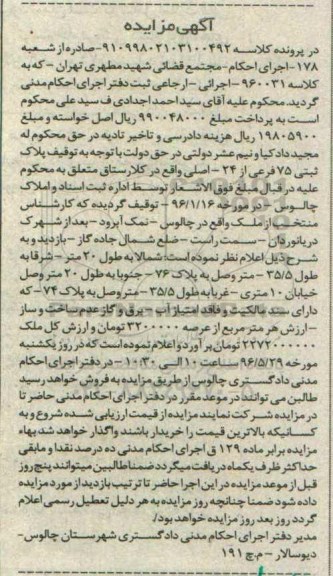 آگهی مزایده
در پرونده کلاسه ۹۱۰۹۹۸۰۲۱۰۳۱۰۰۴۹۲-صادره از شعبه
۱۷۸-اجرای احکام-مجتمع قضائی شهید مطهری تهران - که به
کلاسه ۹۶۰۰۳۱ - اجرائی - ارجاعی ثبت دفتر اجرای احکام مدنی
گردید. محکوم علیه آقای سید احمد اجدادی ف سید علی محکوم
است به پرداخت مبلغ ۹۹۰۰۴۸۰۰۰ ریال اصل خواسته و مبلغ
۱۹۸۰۵۹۰۰ ریال هزینه دادرسی و تاخیر تادیه در حق محکوم له
مجید دادکیا و نیم عشر دولتی در حق دولت با توجه به توقیف پلاک
ثبتی ۷۵ فرعی از ۲۴ - اصلی واقع در کلارستاق متعلق به محکوم
علیه در قبال مبلغ فوق الاشعار توسط اداره ثبت اسناد و املاک
چالوس - در مورخه ۹۶/۱/۱۶ - توقیف گردیده که کارشناس
منتخب از ملک واقع در چالوس - نمک آبرود - بعد از شهرک
دریانوردان - سمت راست - ضلع شمال جاده گاز - بازدید و به
شرح ذیل اعلام نظر نموده است: شمالا به طول ۲۰ متر - شرقا به
طول ۳۵/۵ - متر وصل به پلاک ۷۶ - جنوبا به طول ۲۰ متر وصل
خیابان ۱۰ متری - غربا به طول ۳۵/۵ - متر وصل به پلاک ۷۴ - که
دارای سند مالکیت و فاقد امتیاز آب - برق و گاز عدم ساخت و ساز
- ارزش هر متر مربع از عرصه ۳۲۰۰۰۰۰ تومان و ارزش کل ملک
۲۲۷۲۰۰۰۰۰۰ تومان برآورد و اعلام نموده است که در روز یکشنبه
مورخه ۹۶/۵/۲۹ ساعت ۱۰ الی ۱۰:۳۰ - در دفتر اجرای احکام
مدنی دادگستری چالوس از طریق مزایده به فروش خواهد رسید
طالبین می توانند در موعد مقرر در دفتر اجرای احکام مدنی حاضر تا
در مزایده شرکت نمایند مزایده از قیمت ارزیابی شده شروع و به
کسانیکه بالاترین قیمت را خریدار باشند واگذار خواهد شد بهاء
مزایده برابر ماده ۱۲۹ ق اجرای احکام مدنی ده درصد نقدا و مابقی
حداکثر ظرف یکماه دریافت میگردد ضمنا طالبین میتوانند پنج روز
قبل از موعد مزایده در این اجرا حاضر تا ترتیب بازدید از مورد مزایده
داده شود ضمنا چنانچه روز مزایده به هر دلیل تعطیل رسمی اعلام
گردد روز بعد روز مزایده خواهد بود/.
مدیر دفتر اجرای احکام مدنی دادگستری شهرستان چالوس-
دیوسالار - م.چ ۱۹۱